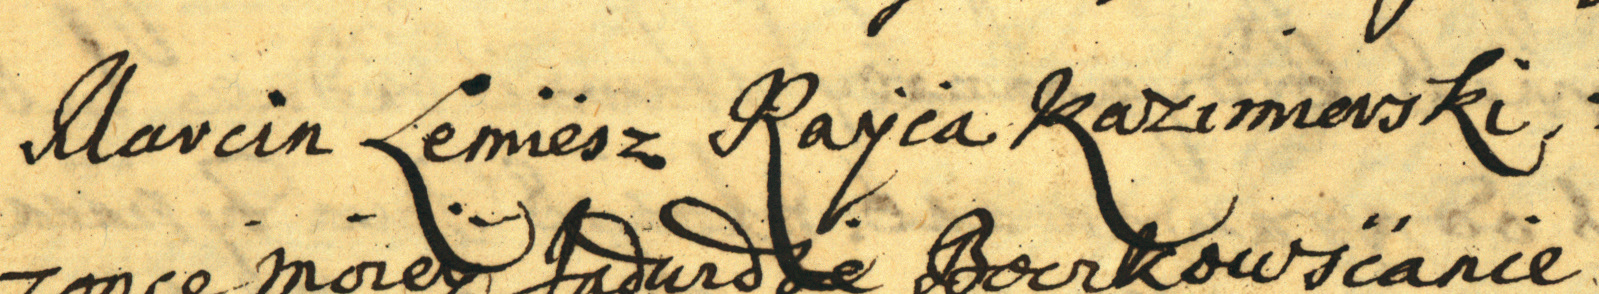 Marcin Lemiesz Rayca Kazimierski,
zonce moiey Jadwidze Borkowśćance